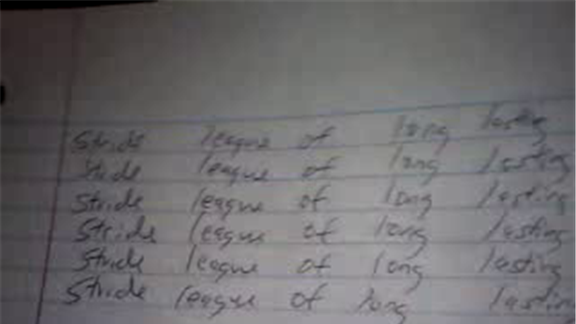 Stride league of long lasting
Stride league of long lasting
Stride league of long lasting
Stride league of long lasting
Stride league of long lasting
Stride league of long lasting